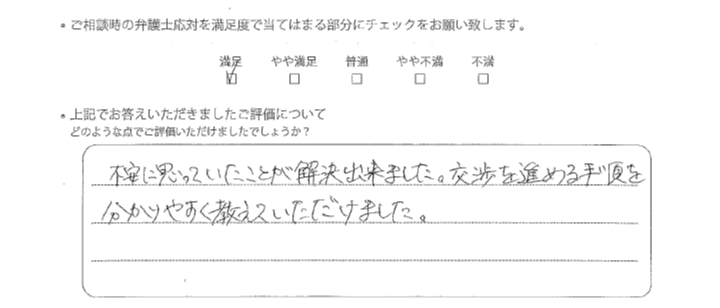 • ご相談時の弁護士応対を満足度で当てはまる部分にチェックをお願い致します。
満足 やや満足 普通 やや不満 不満
☑ □ □ □ □
• 上記でお答えいただきましたご評価について
どのような点でご評価いただけましたでしょうか？
不安に思っていたことが解決出来ました。交渉を進める手順を
分かりやすく教えていただけました。